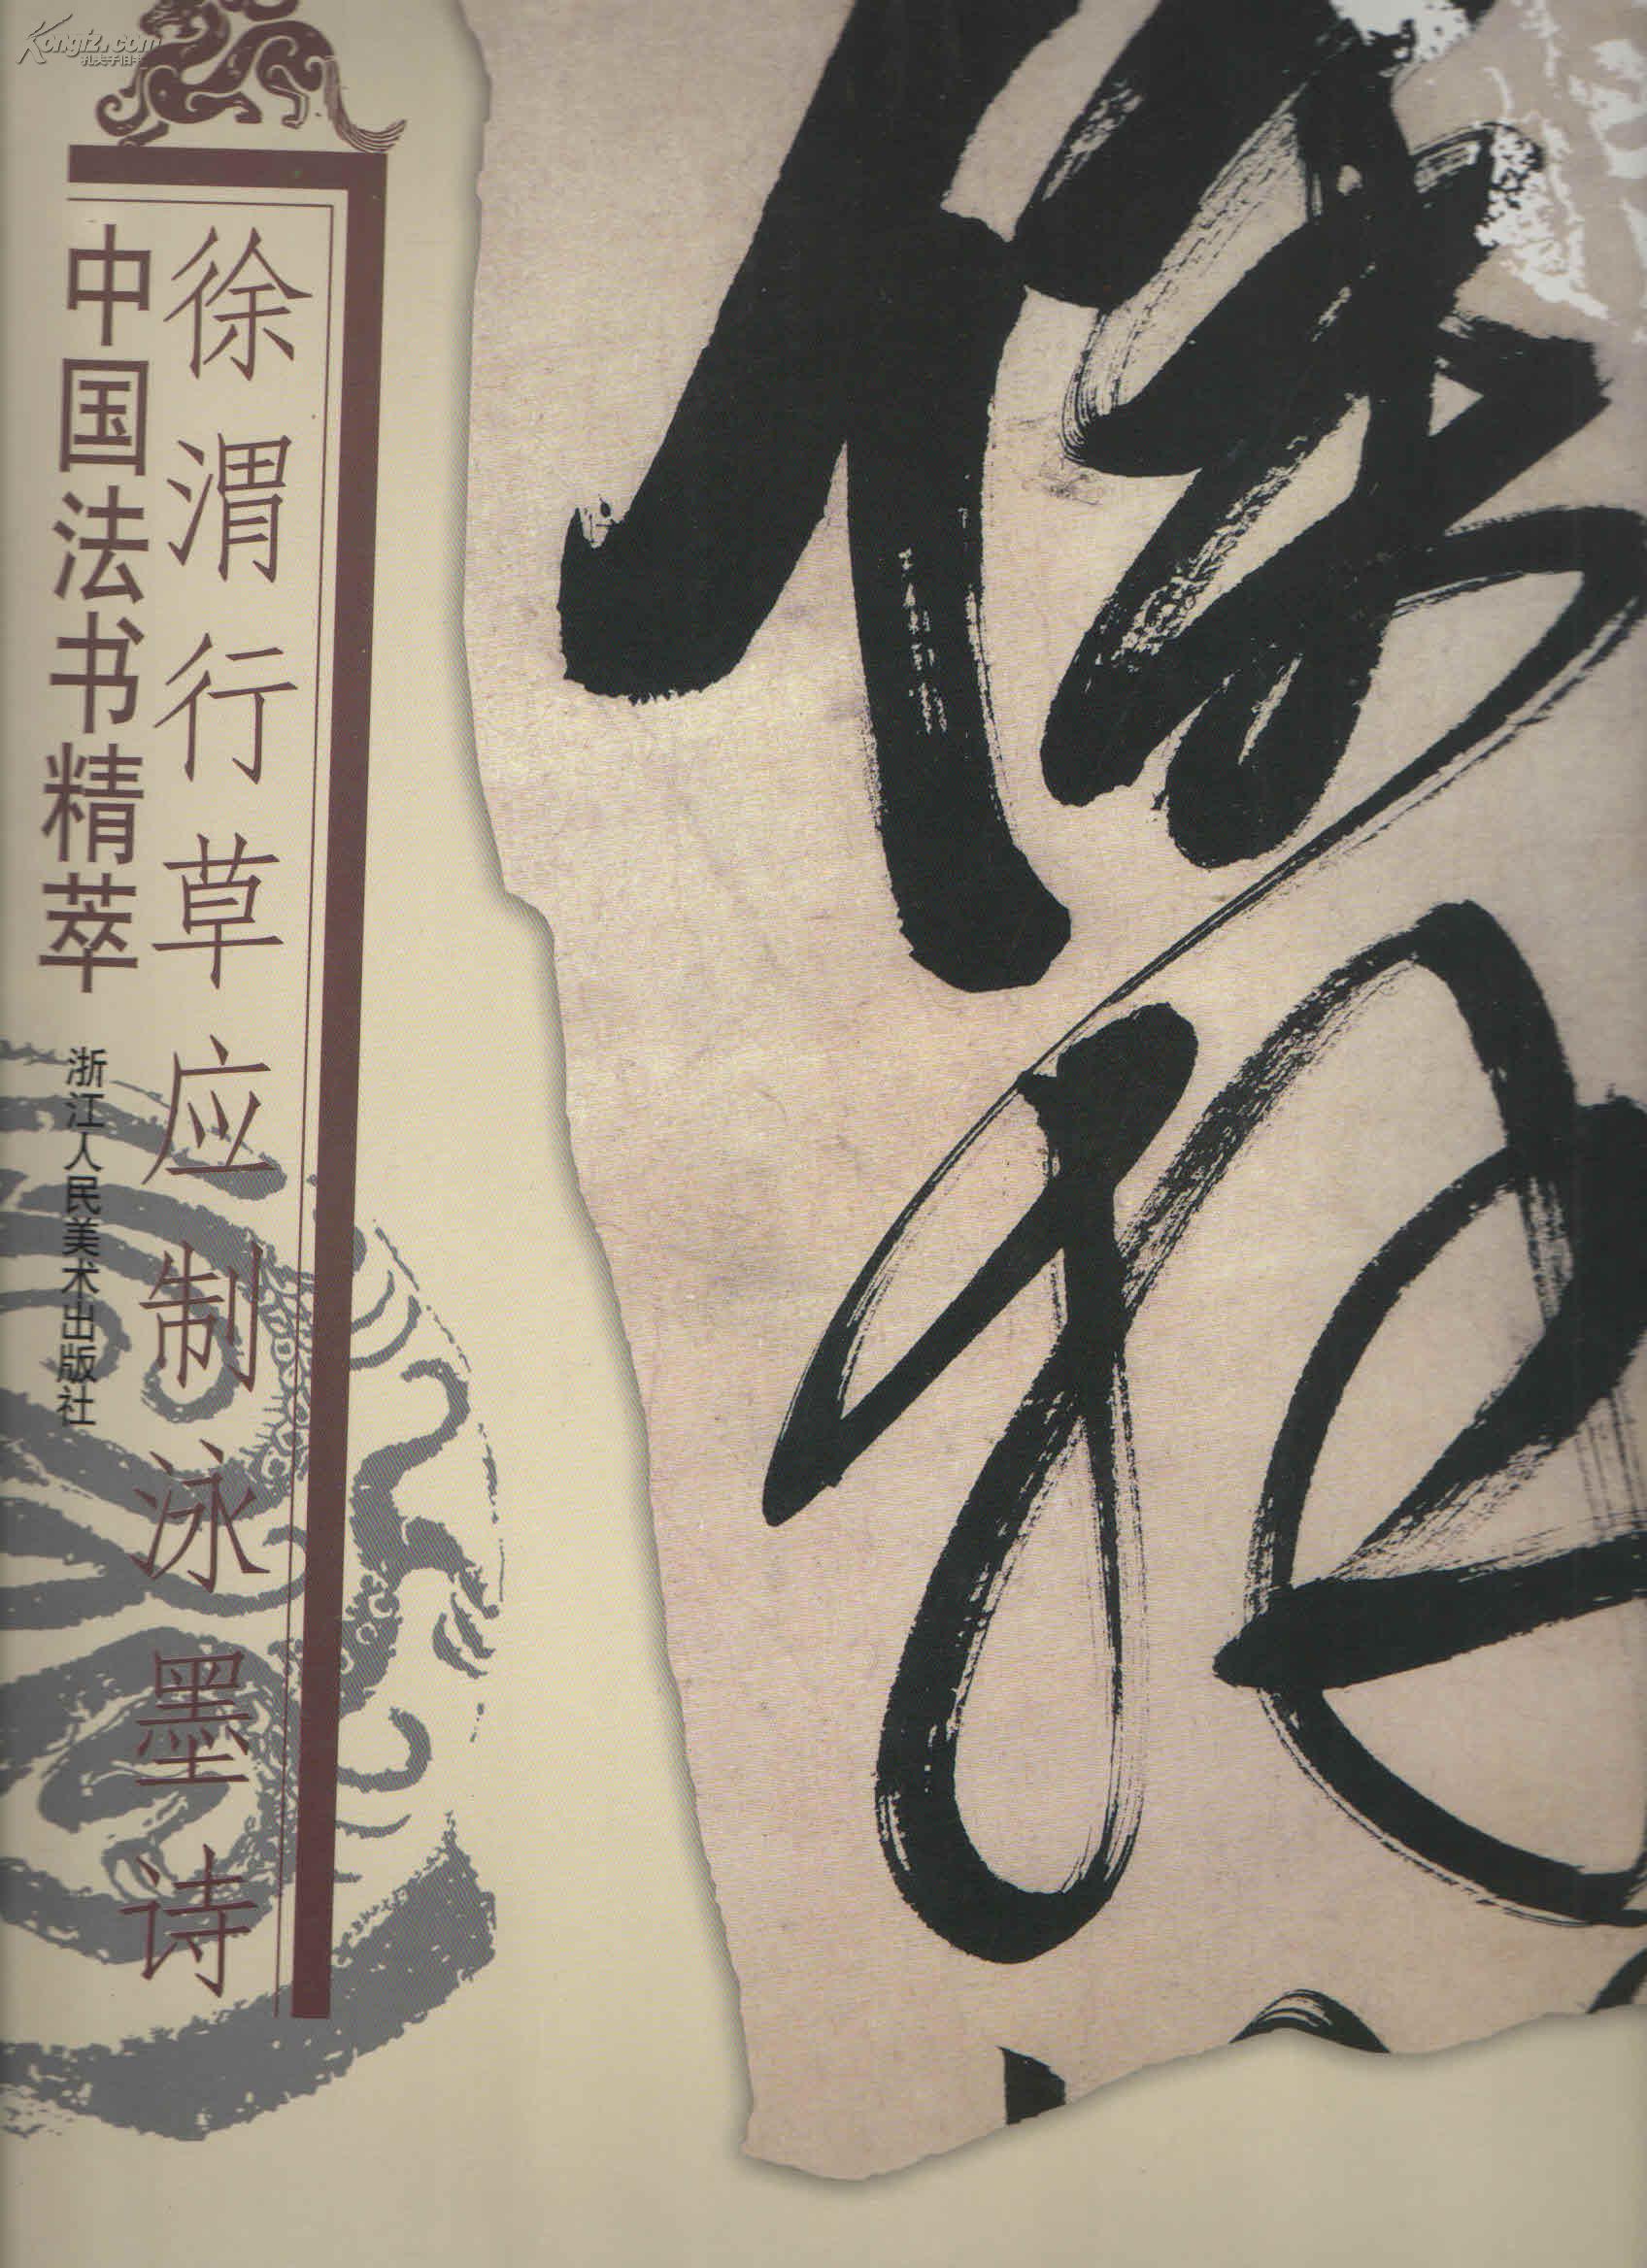 徐渭行草应制泳墨诗
中国法书精萃
浙江人民美术出版社
Kongfz.com
孔夫子旧书